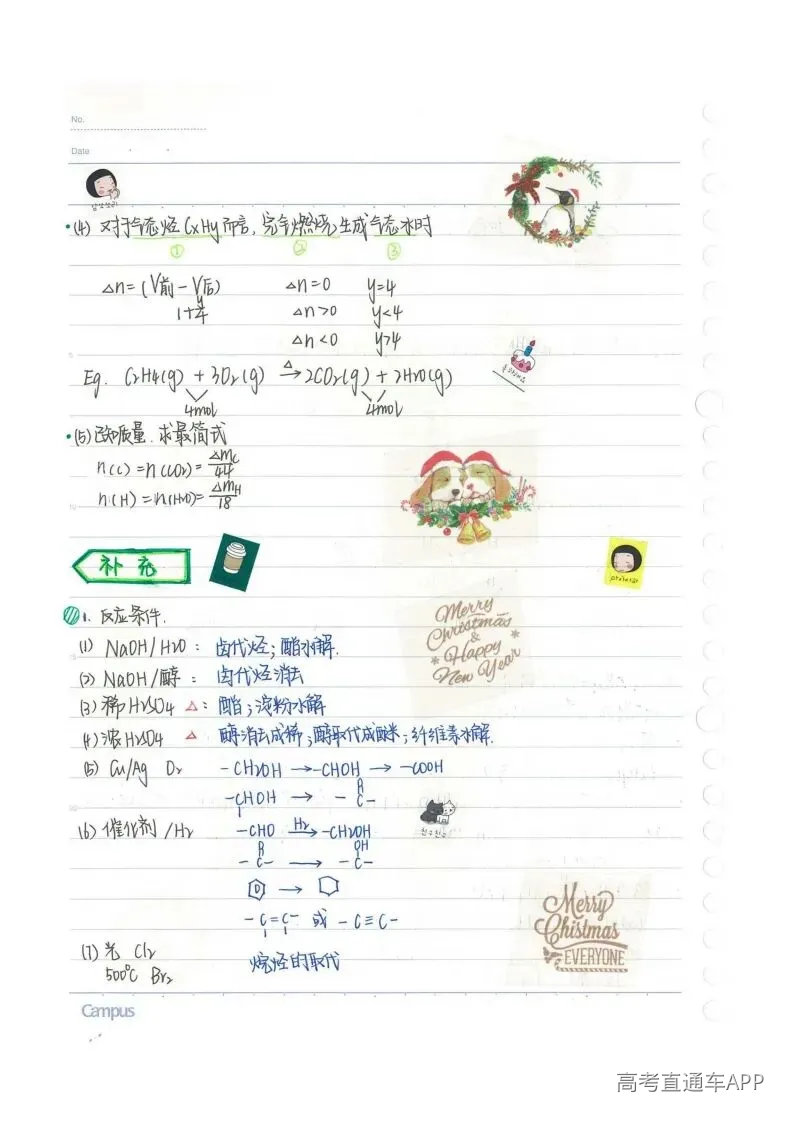 No.
Date
(4) 对于气态烃CxHy而言，完全燃烧生成气态水时
① ② ③
△n=(V前-V后) △n=0 y=4
1+y/4 △n>0 y<4
△n<0 y>4
Eg. C2H4(g) + 3O2(g) △→ 2CO2(g) + 2H2O(g)
4mol 4mol
(5) 已知质量.求最简式
n(C)=n(CO2)=△mC/44
n(H)=n(H2O)=△mH/18
补充
1. 反应条件.
(1) NaOH/H2O: 卤代烃；酯水解.
(2) NaOH/醇: 卤代烃消去
(3) 稀H2SO4 △: 酯；淀粉水解
(4) 浓H2SO4 △ 醇消去成烯；醇取代成醚；纤维素水解.
(5) Cu/Ag O2 -CH2OH → -CHOH → -COOH
-CHOH → -C-
(6) 催化剂/H2 -CHO H2→ -CH2OH
-C- → -C-
OH
-C=C- 或 -C≡C-
(7) 光 Cl2 烷烃的取代
500℃ Br2
Merry
Christmas
&
Happy
New Year
Merry
Chistmas
EVERYONE
Campus
高考直通车APP